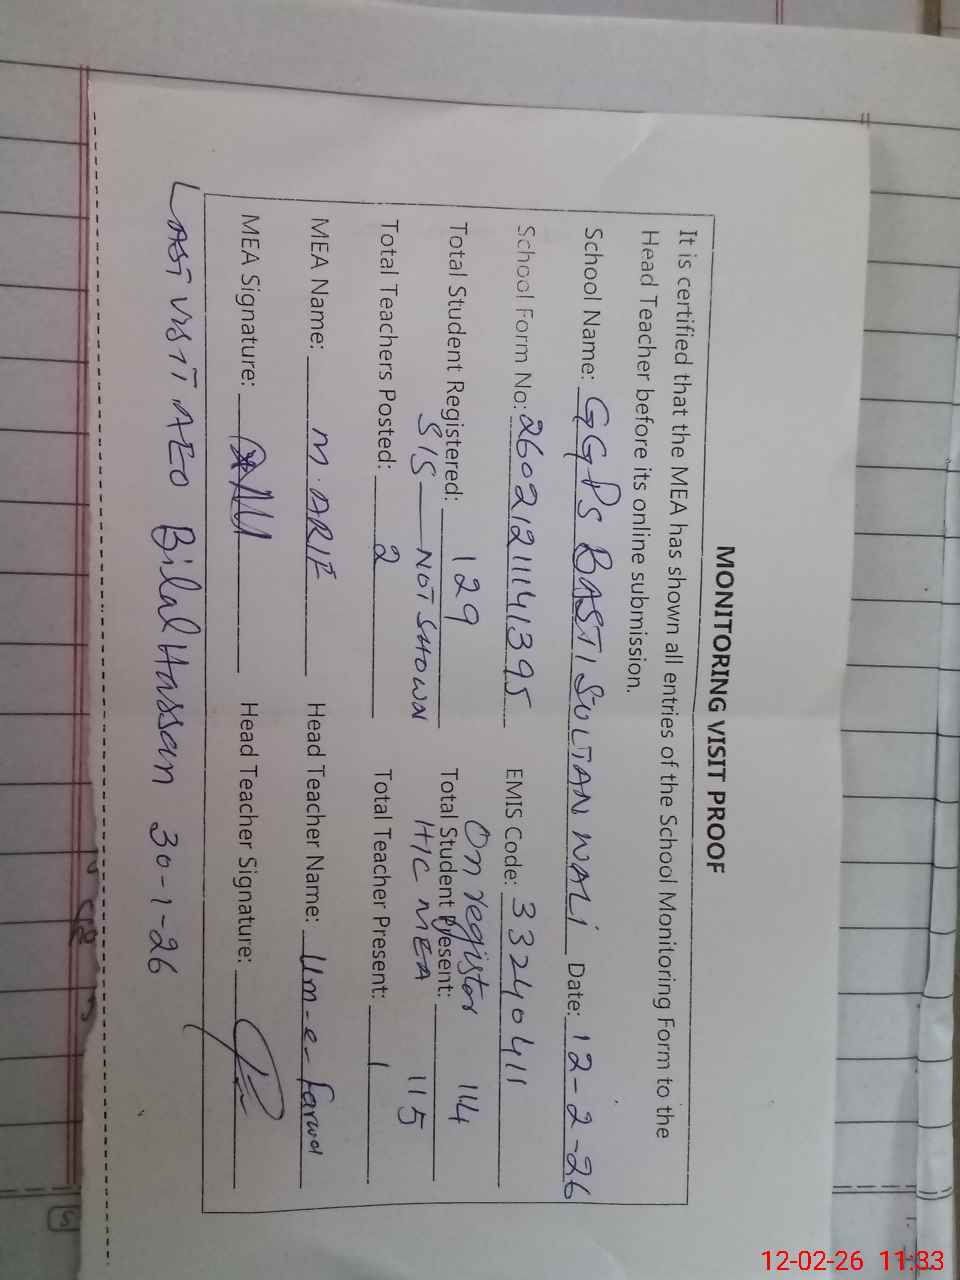 MONITORING VISIT PROOF
It is certified that the MEA has shown all entries of the School Monitoring Form to the
Head Teacher before its online submission.
School Name: GGPS BASTI SULTAN WALI Date: 12-2-26
School Form No: 26021211141395 EMIS Code: 33240411
On register 114
Total Student Registered: 129 Total Student Present:
SIS — NOT SHOWN H/C MEA 115
Total Teachers Posted: 2 Total Teacher Present: 1
MEA Name: M. ARIF Head Teacher Name: Um-e-farwa
MEA Signature: Head Teacher Signature:
LAST VISIT AEO Bilal Hassan 30-1-26
12-02-26 11:33